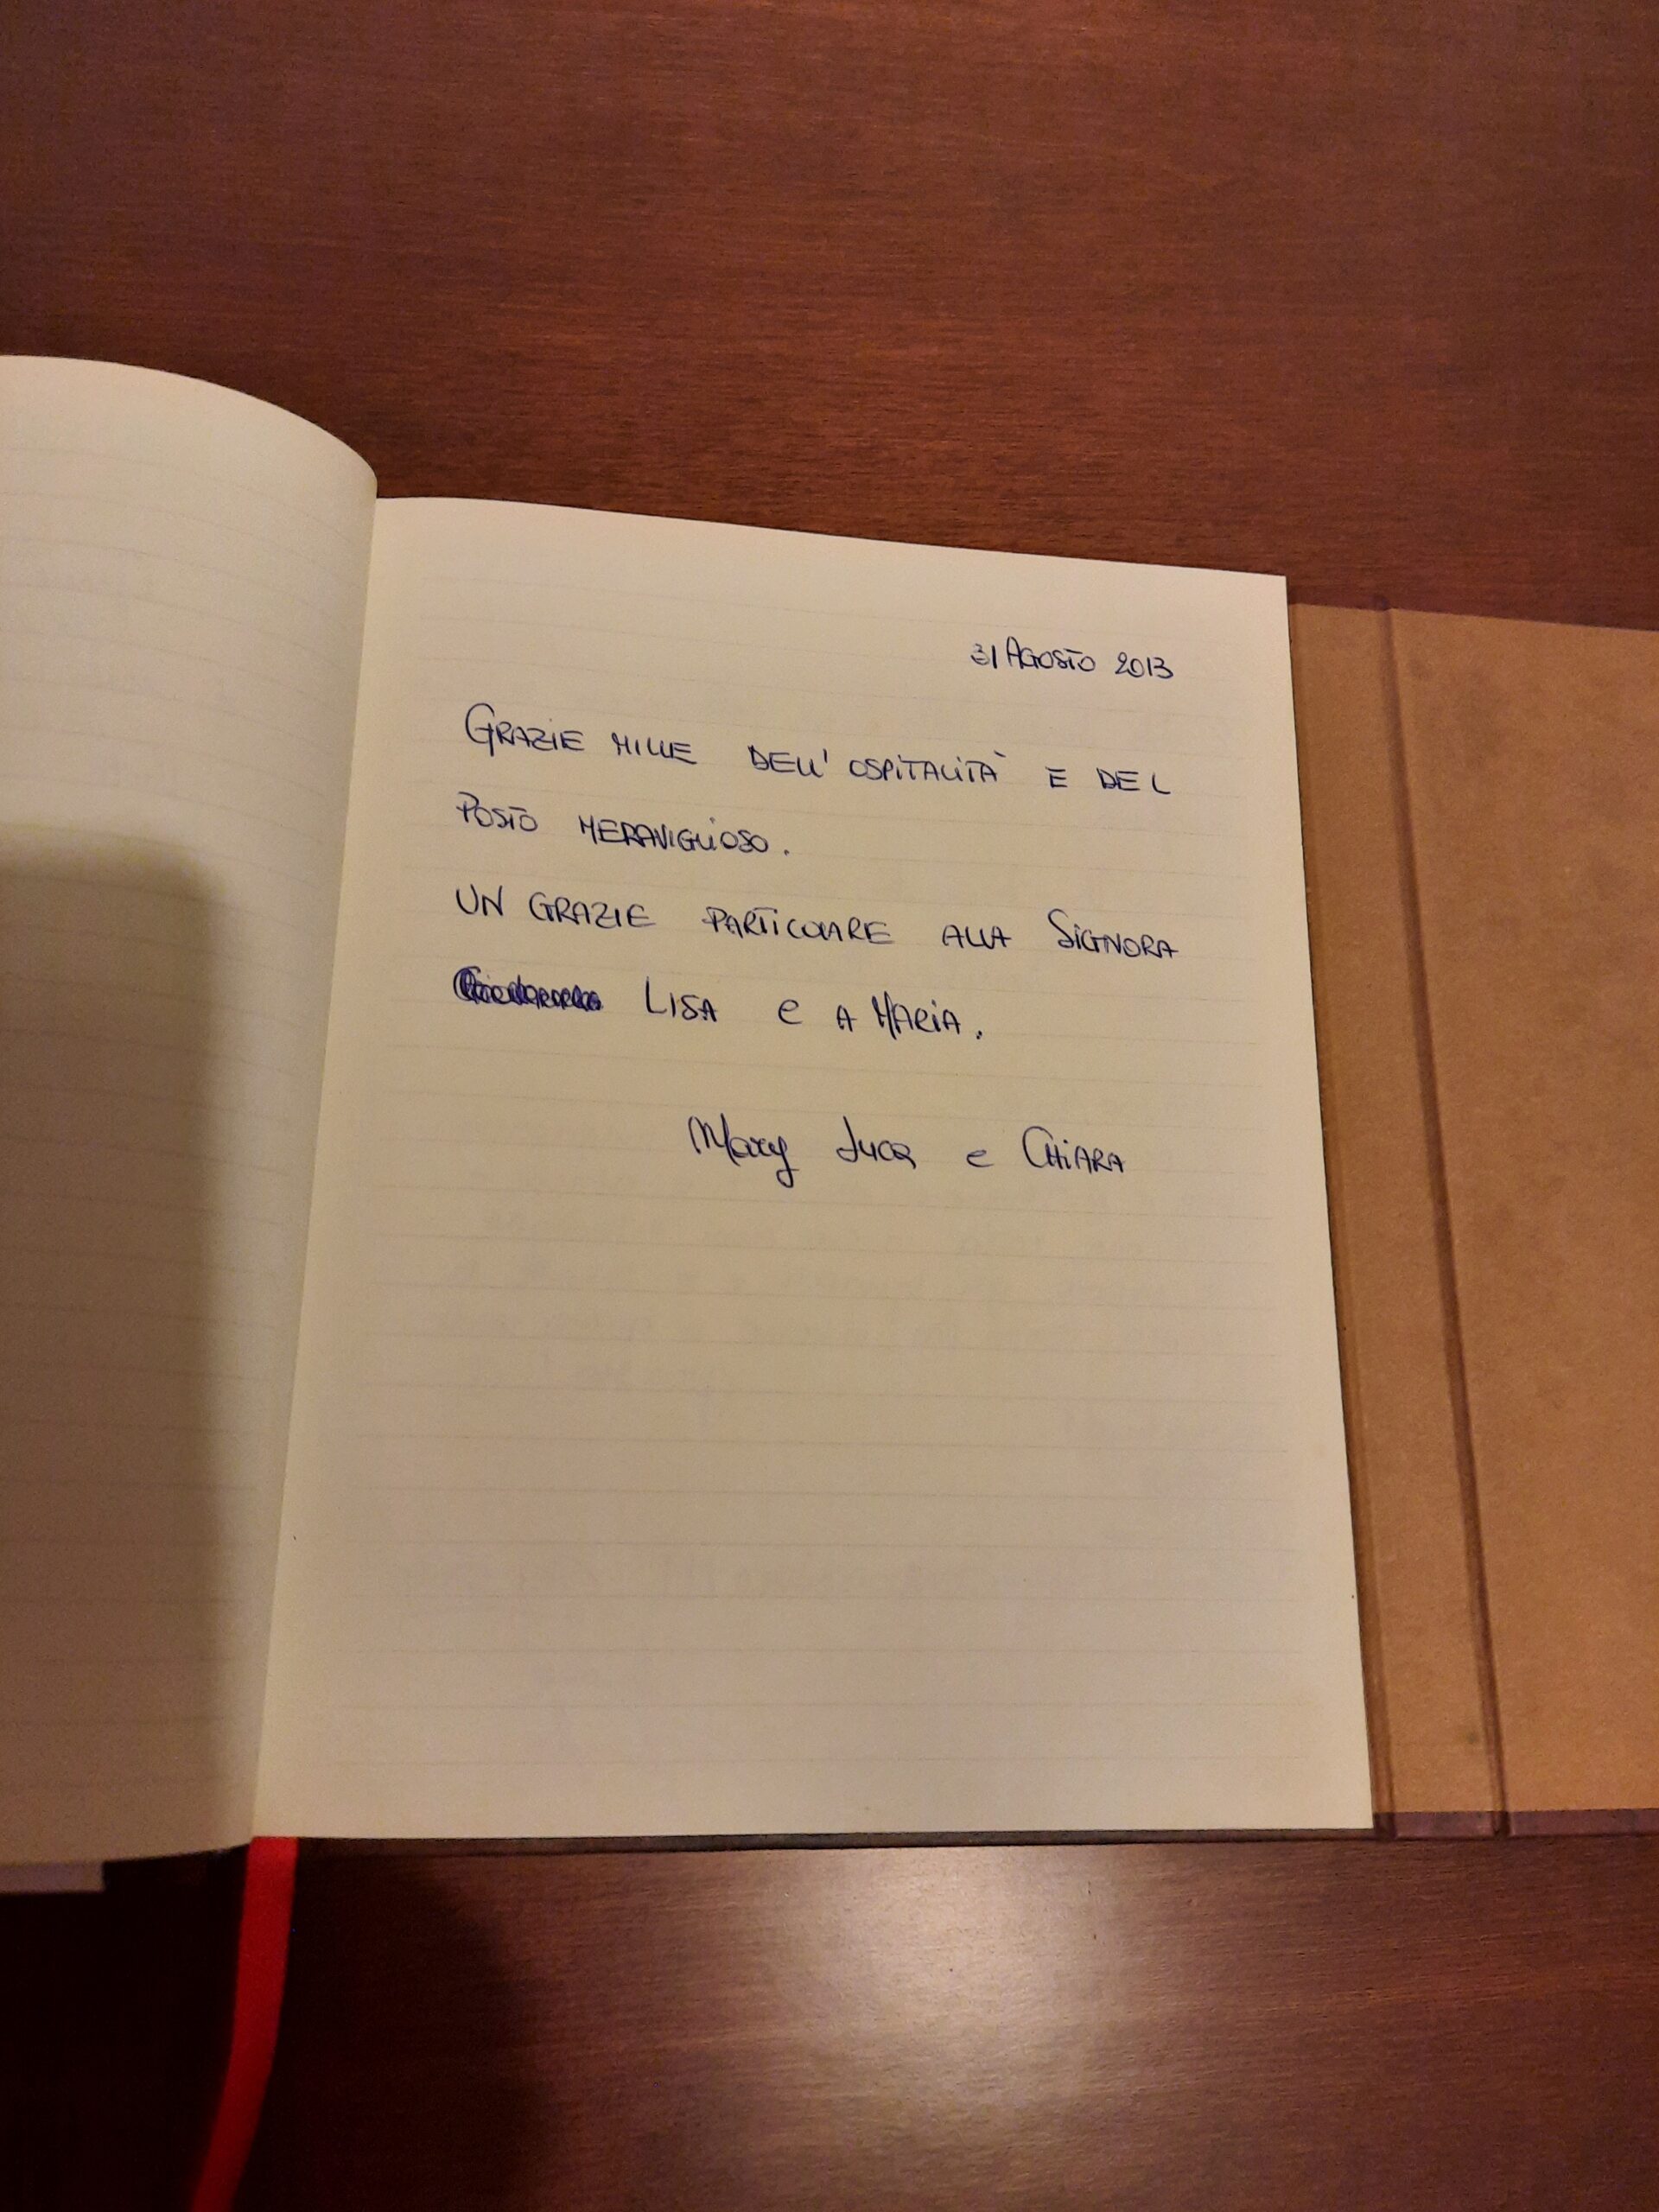 31 AGOSTO 2013
GRAZIE MILLE DELL' OSPITALITÀ E DEL
POSTO MERAVIGLIOSO.
UN GRAZIE PARTICOLARE ALLA SIGNORA
LISA e A MARIA.
Mary Luca e CHIARA